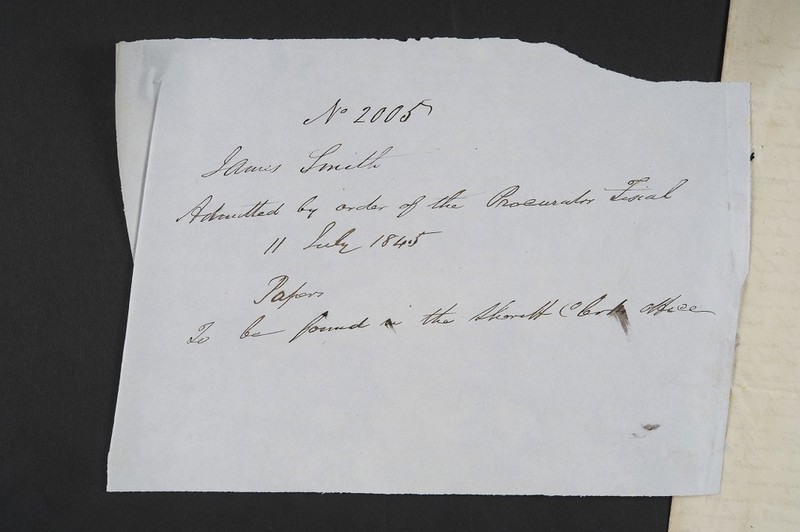 No 2005
James Smith
Admitted by order of the Procurator Fiscal
11 July 1845
Papers
To be found in the Sheriff Clerks office